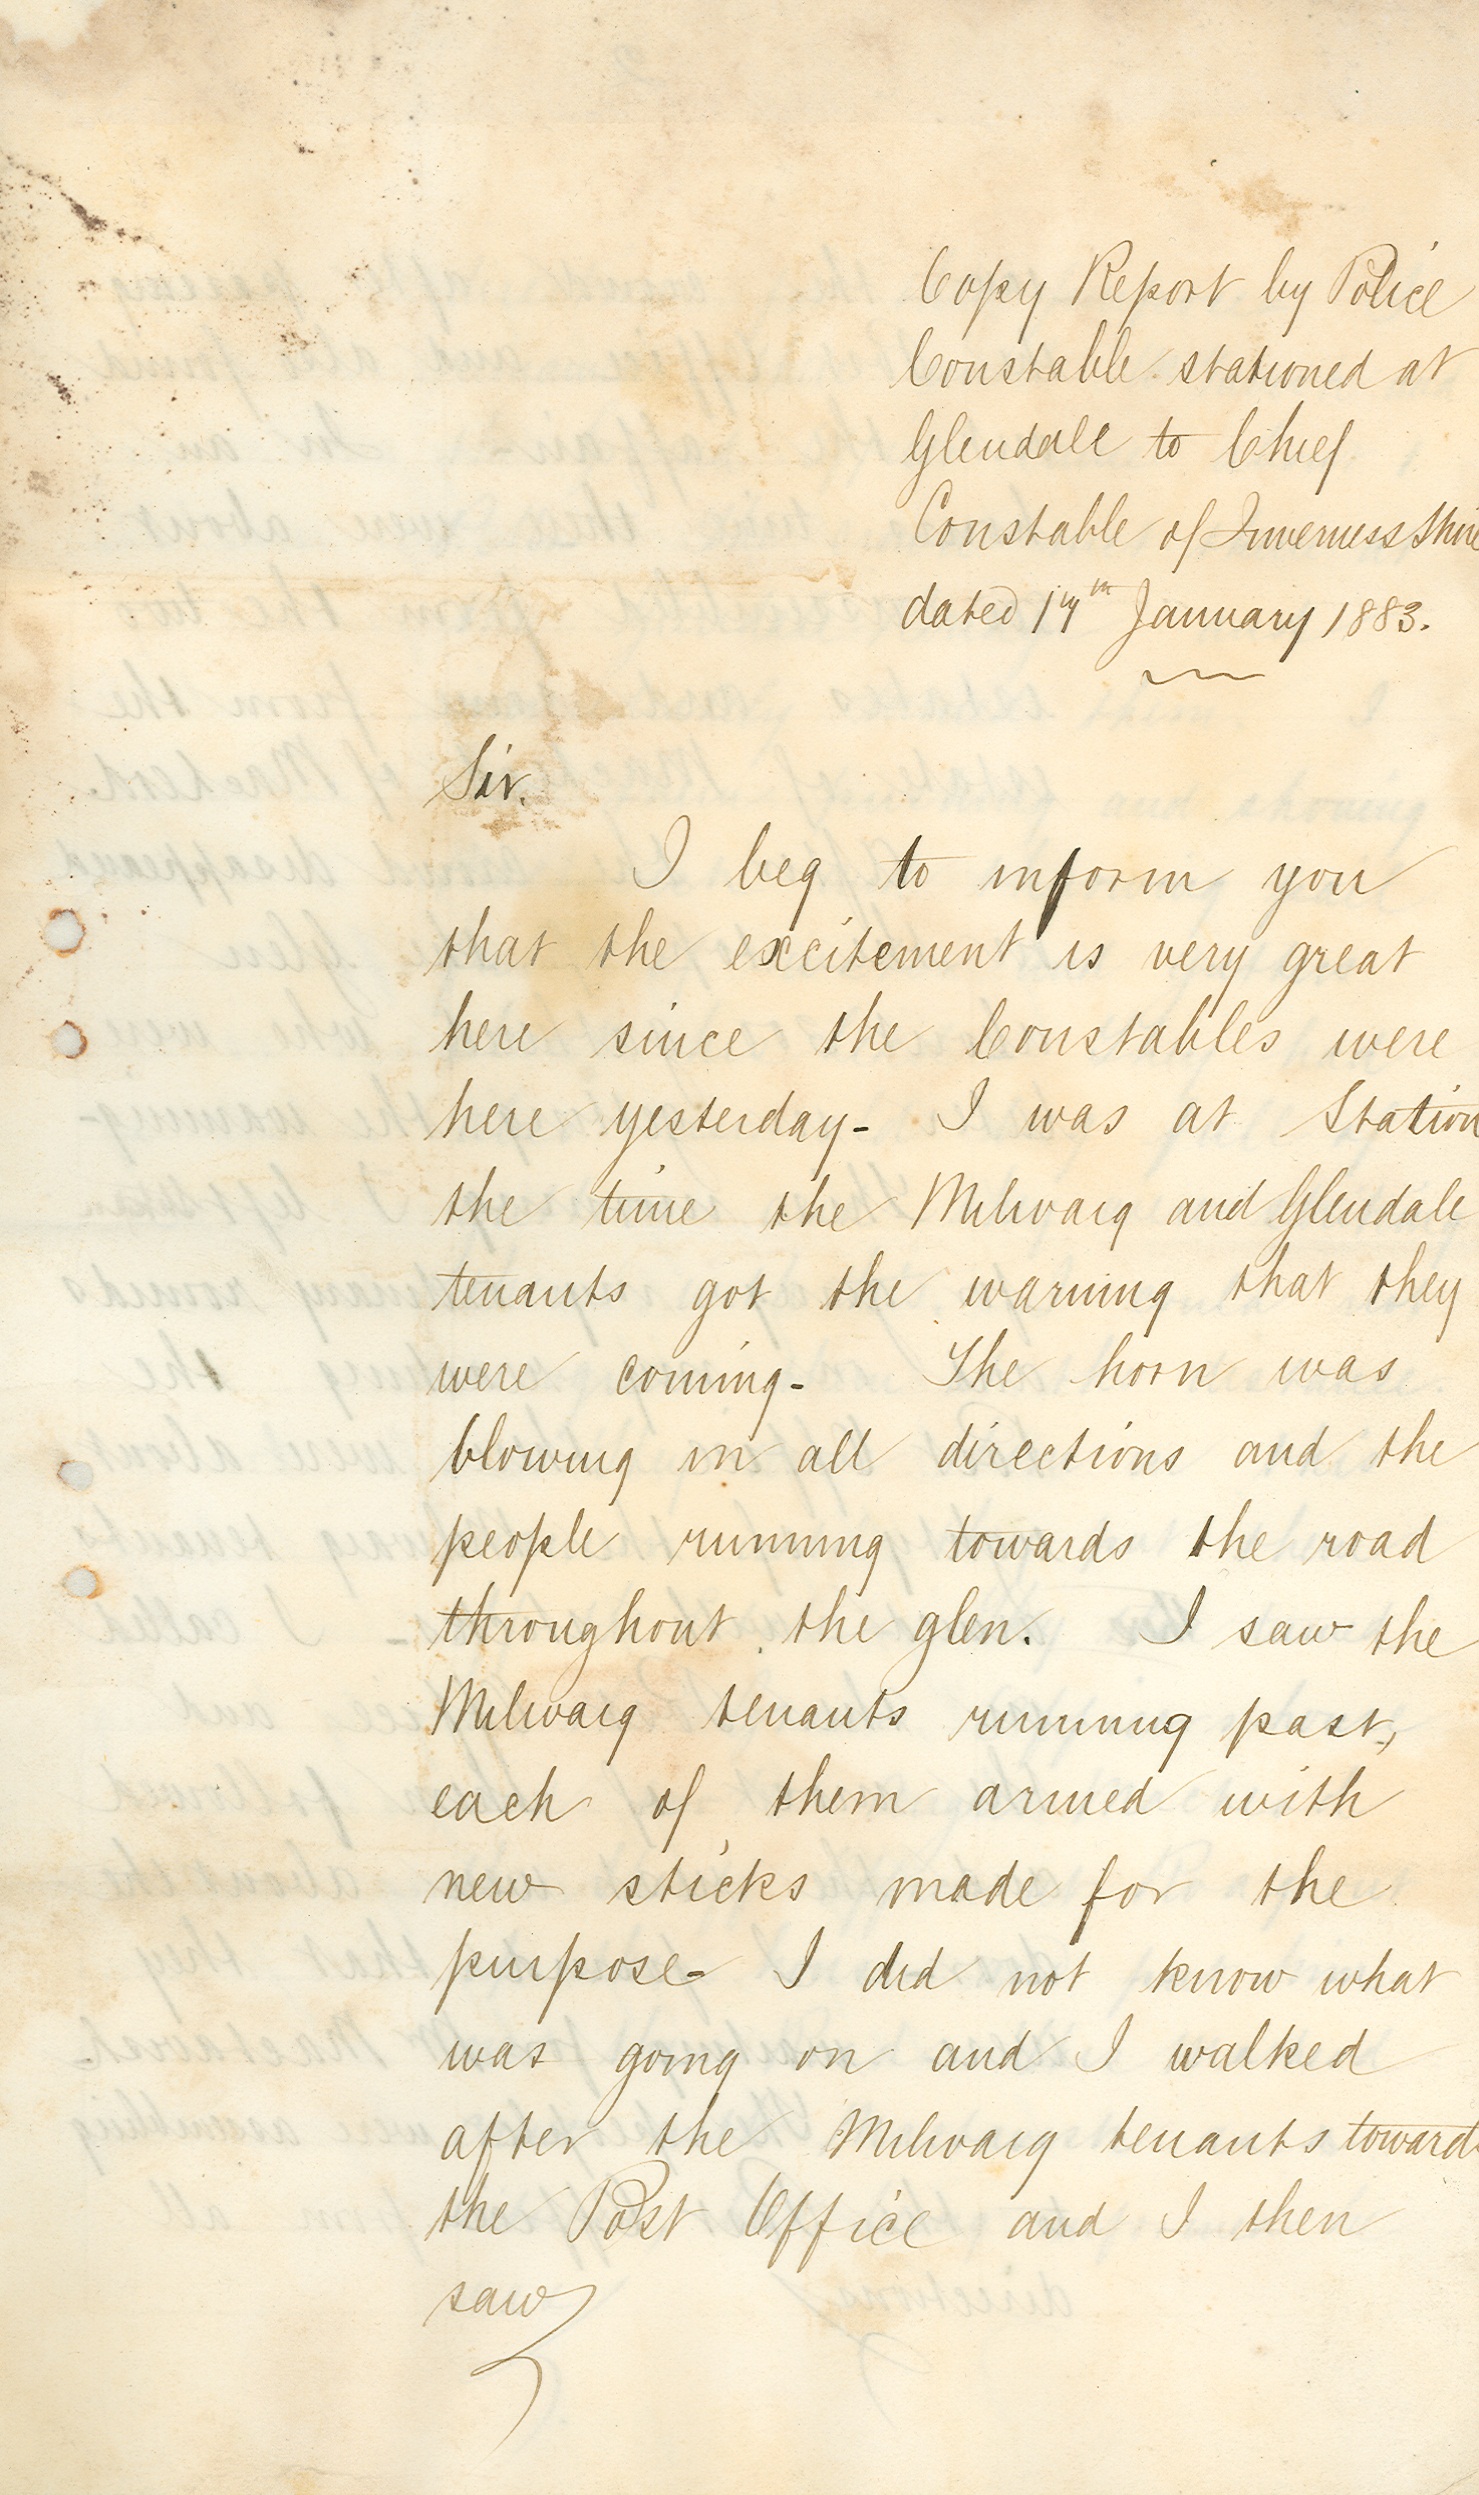 Copy Report by Police
Constable stationed at
Glendale to Chief
Constable of Inverness Shire
dated 17th January 1883.
Sir.
I beg to inform you
that the excitement is very great
here since the Constables were
here yesterday- I was at Station
the time the Milivaig and Glendale
tenants got the warning that they
were coming- The horn was
blowing in all directions and the
people running towards the road
throughout the glen. I saw the
Milivaig tenants running past,
each of them armed with
new sticks made for the
purpose- I did not know what
was going on and I walked
after the Milivaig tenants towards
the Post Office and I then
saw